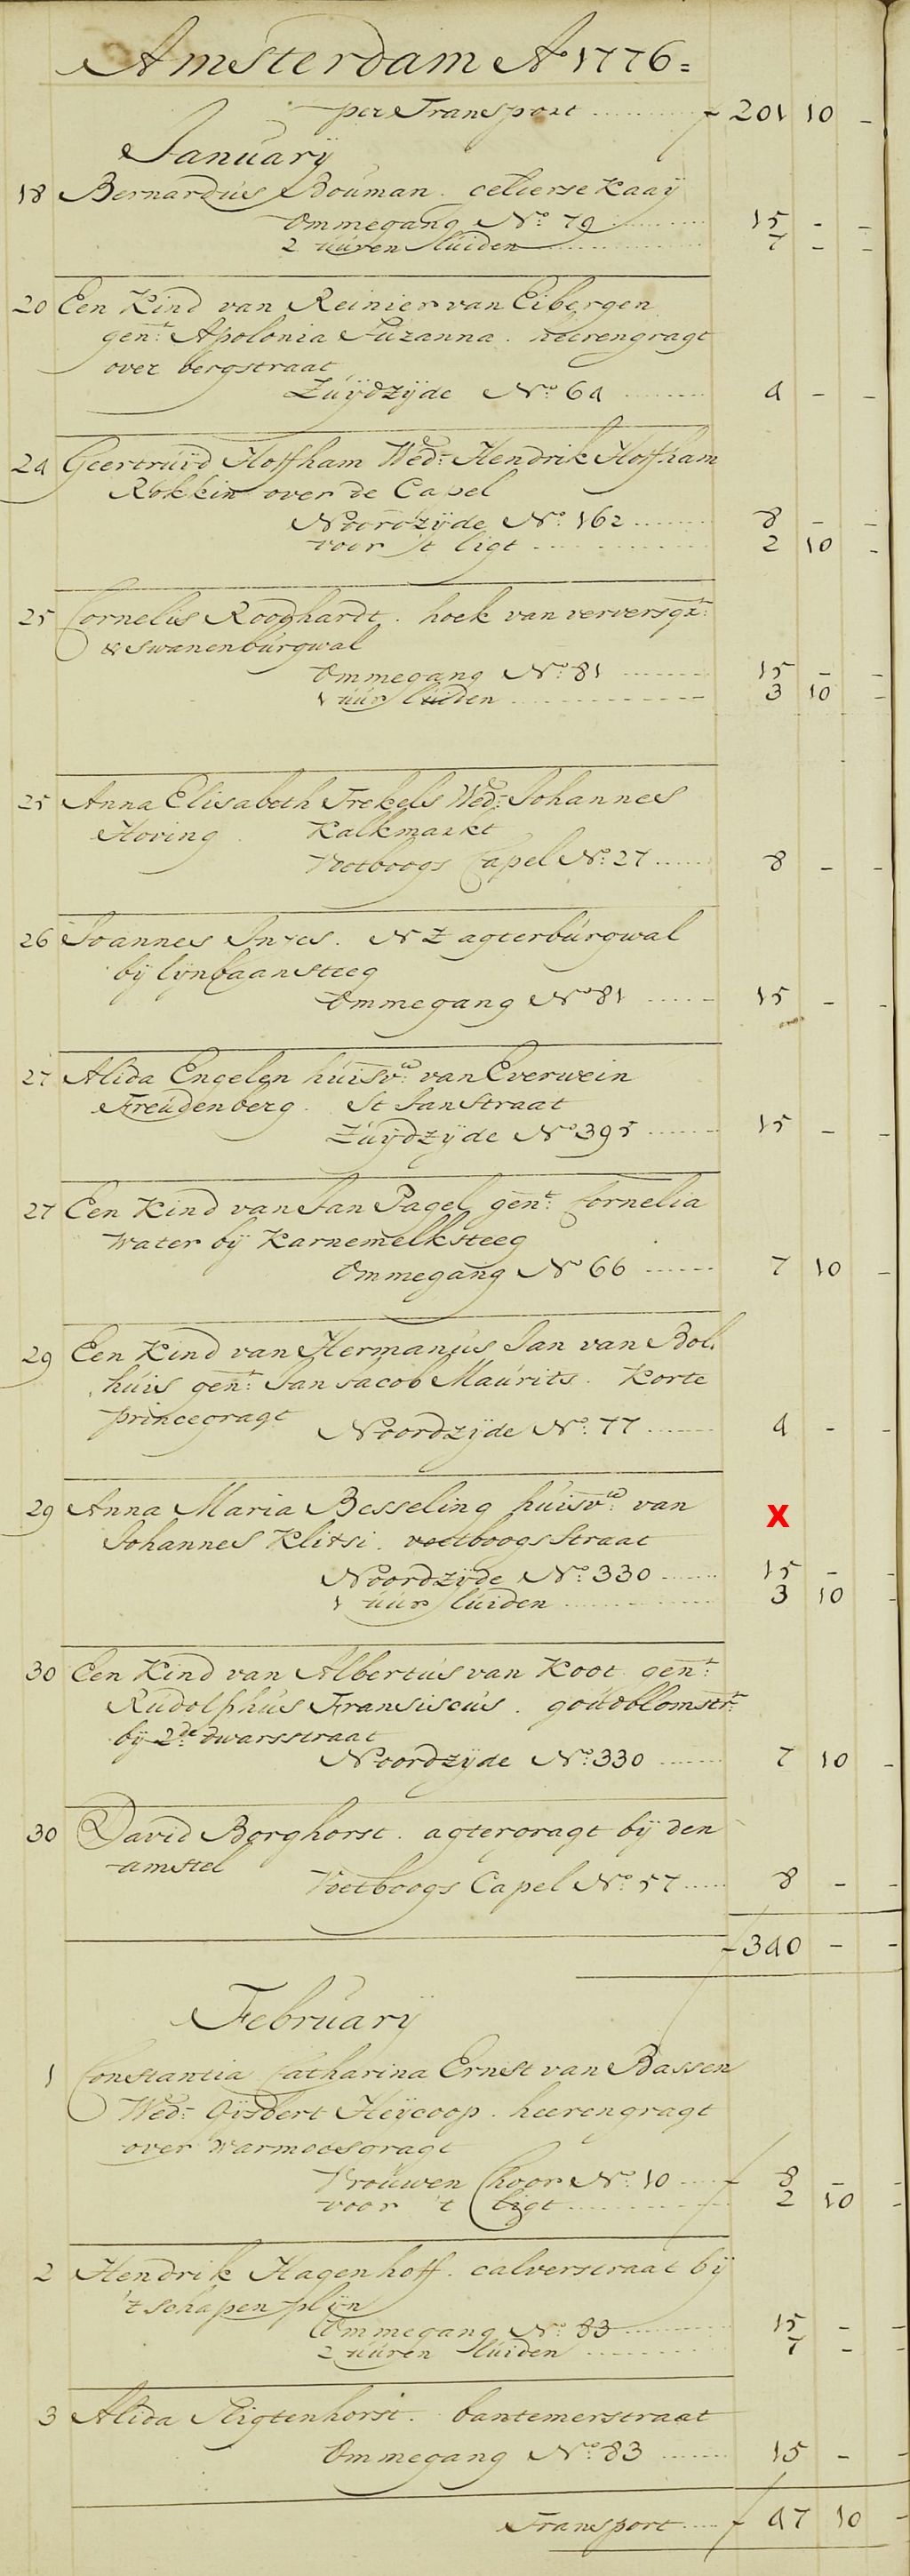 Amsterdam Ao 1776 =
per Transport .......... f 201 10 -
Januarÿ
18 Bernardus Bouman. celierse Kaaÿ
Ommegang No. 79 ........ 15 - -
2 uuren luiden ........ 7 - -
20 Een Kind van Reinier van Eibergen
gent. Apolonia Suzanna. heerengragt
over bergstraat
Zuÿdzÿde No. 64 ........ 4 - -
24 Geertruÿd Hoffham Wede. Hendrik Hoffham
Rokkin over de Capel
Noordzÿde No. 162 ....... 8 - -
voor 't ligt ........ 2 10 -
25 Cornelis Rooghardt. hoek van ververs gt.
& Swanenburgwal
Ommegang No. 81 ....... 15 - -
1 uur luiden ........ 3 10 -
25 Anna Elisabeth Frekels Wede. Johannes
Hoving. Kalkmarkt
Voetboogs Capel No. 27 ...... 8 - -
26 Joannes Inies. NZ agterburgwal
bÿ lÿnbaansteeg
Ommegang No 81 ...... 15 - -
27 Alida Engelen huisve. van Everwein
Freudenberg. St Jan Straat
Zuÿdzÿde No 395 ....... 15 - -
27 Een Kind van Jan Pagel gent. Cornelia
Water bÿ Karnemelksteeg
Ommegang No 66 ...... 7 10 -
29 Een Kind van Hermanus Jan van Bol.
huis gent. Jan Jacob Maurits. Korte
princegragt
Noordzÿde No. 77 ...... 4 - -
29 Anna Maria Besseling huisve. van X
Johannes Klitsi. voetboogs Straat
Noordzÿde No. 330 ...... 15 - -
1 uur luiden ........ 3 10 -
30 Een Kind van Albertus van Koot gent.
Rudolphus Fransiscus. goudblomstr.
bÿ 2de dwarsstraat
Noordzÿde No. 330 ...... 7 10 -
30 David Borghorst. agtergragt bÿ den
amstel
Voetboogs Capel No. 57 ..... 8 - -
f 340 - -
Februarÿ
1 Constantia Catharina Ernst van Bassen
Wede. Gÿsbert Heÿcoop. heerengragt
over Warmoesgragt
Vrouwen Choor No. 10 .... f 8 - -
voor 't ligt ........ 2 10 -
2 Hendrik Hagenhoff. calverstraat bÿ
't schapen plÿn
Ommegang No. 83 ........ 15 - -
2 uuren luiden ........ 7 - -
3 Alida Sligtenhorst. bantemerstraat
Ommegang No. 83 ...... 15 - -
Transport .... f 47 10 -